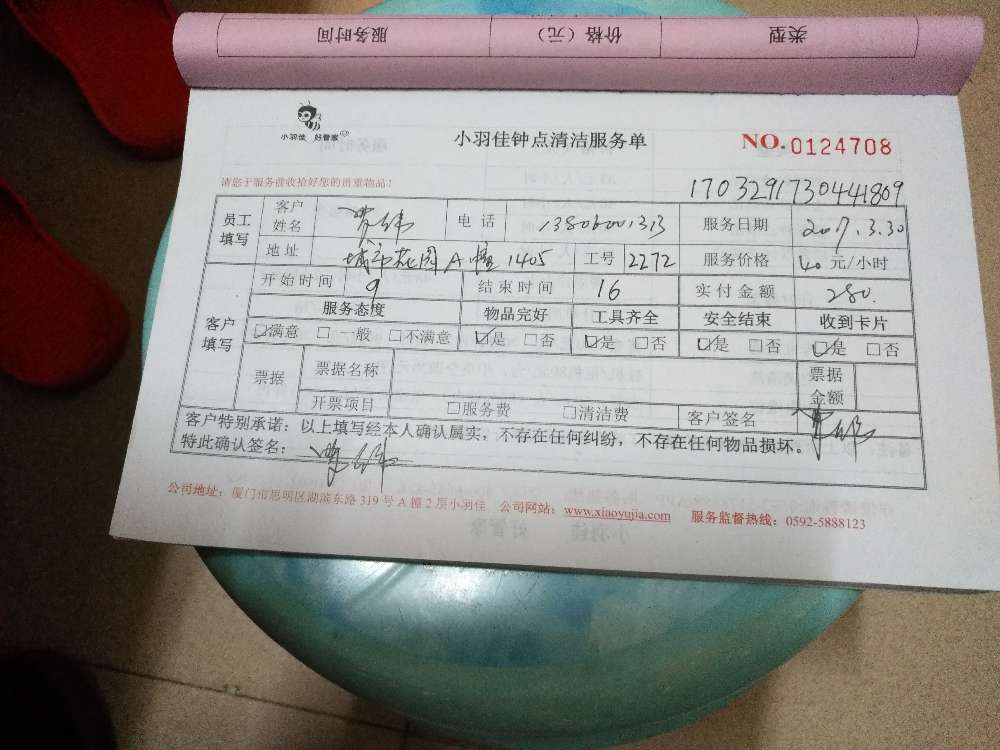 类型 价格（元） 服务时间
小羽佳 好管家
小羽佳钟点清洁服务单
NO. 0124708
请您于服务前收拾好您的贵重物品！
1703291730441809
员工填写 客户姓名 电话 13806001313 服务日期 2017.3.30
地址 城市花园A幢1405 工号 2272 服务价格 40 元/小时
客户填写 开始时间 9 结束时间 16 实付金额 280.
服务态度 物品完好 工具齐全 安全结束 收到卡片
☑满意 □一般 □不满意 ☑是 □否 ☑是 □否 ☑是 □否 ☑是 □否
票据 票据名称 票据金额
开票项目 □服务费 □清洁费 客户签名
客户特别承诺：以上填写经本人确认属实，不存在任何纠纷，不存在任何物品损坏。
特此确认签名：
公司地址：厦门市思明区湖滨东路 319 号 A 幢 2 层小羽佳 公司网站：www.xiaoyujia.com 服务监督热线：0592-5888123